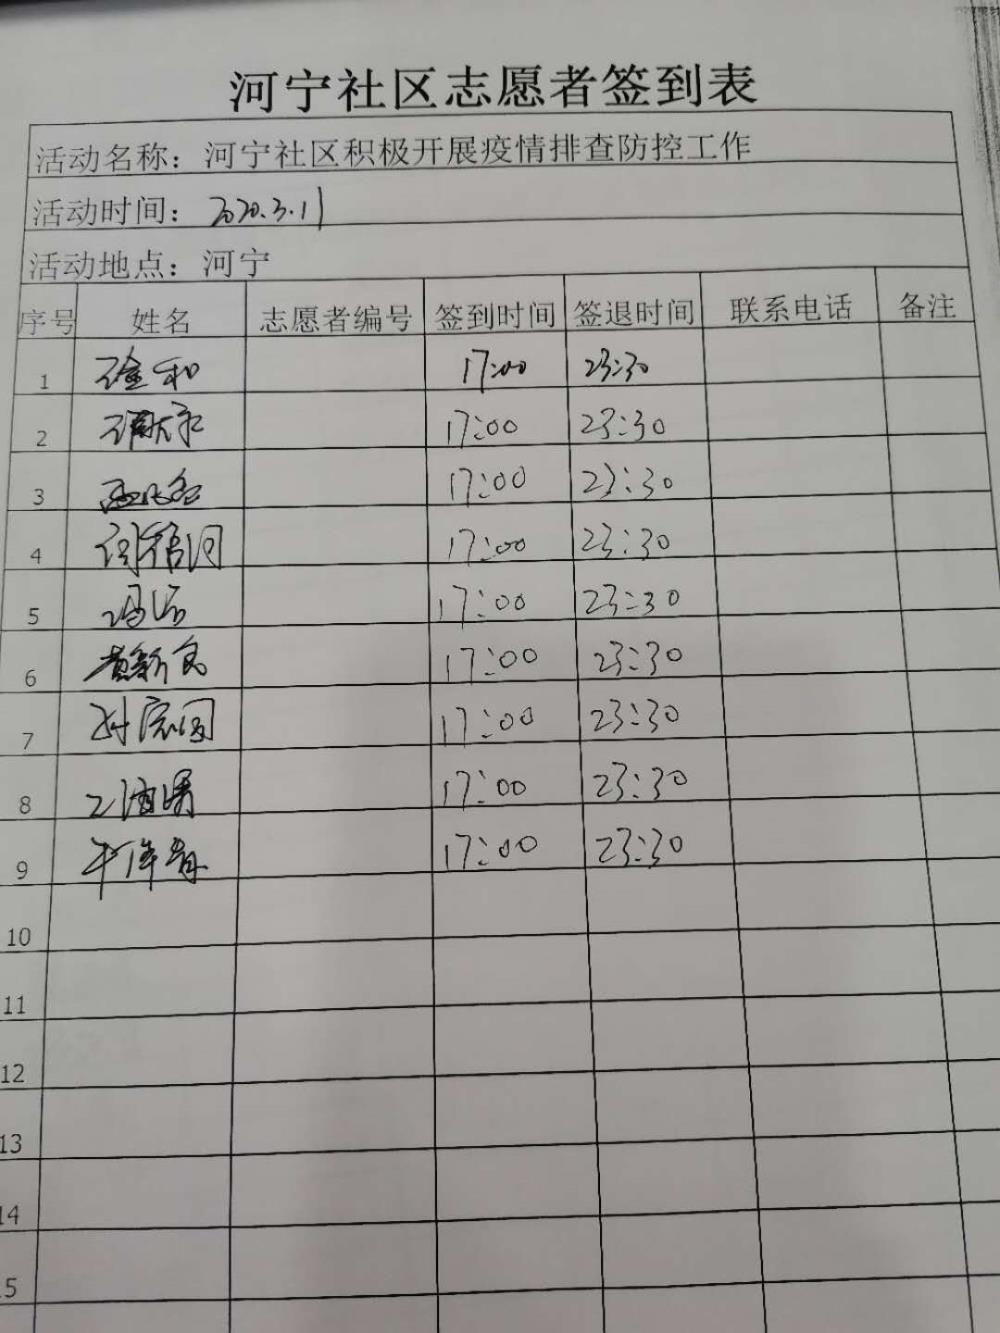 河宁社区志愿者签到表
活动名称：河宁社区积极开展疫情排查防控工作
活动时间：2020.3.11
活动地点：河宁
序号 姓名 志愿者编号 签到时间 签退时间 联系电话 备注
1 17:00 23:30
2 17:00 23:30
3 17:00 23:30
4 17:00 23:30
5 17:00 23:30
6 黄新良 17:00 23:30
7 17:00 23:30
8 17:00 23:30
9 17:00 23:30
10
11
12
13
14
15